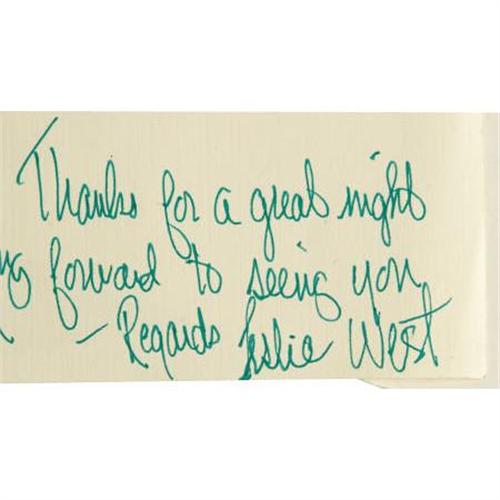 Thanks for a great night
ng forward to seeing you
— Regards Leslie West